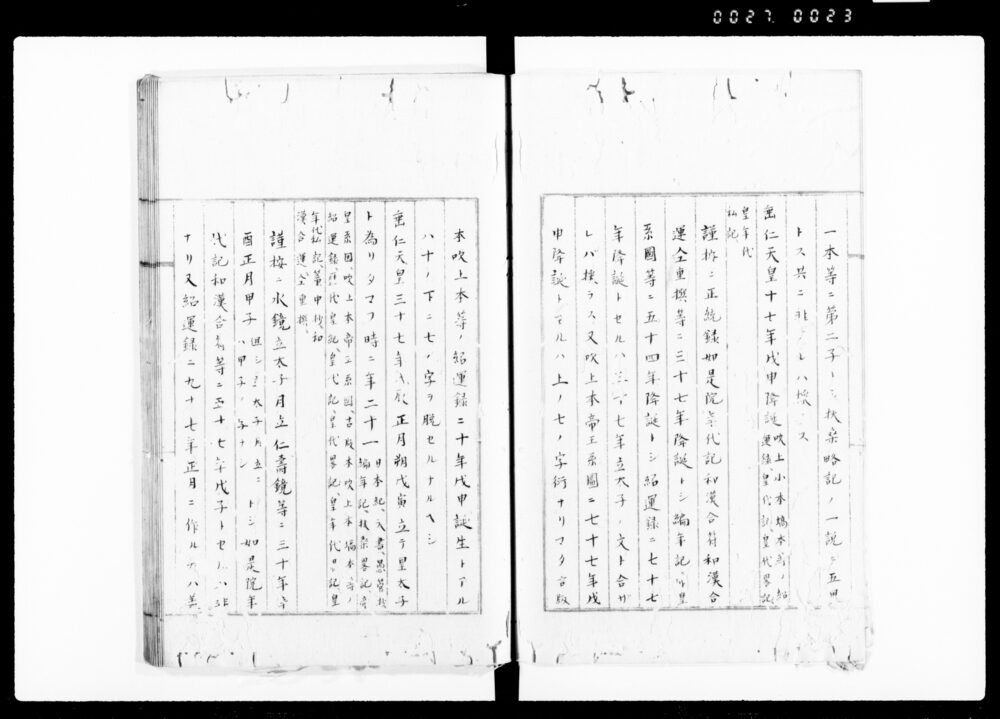 0027. 0023
一本等ニ第二子トシ扶桑略記ノ一説ニ五男
トス共ニ非ナレハ採ラス
垂仁天皇十七年戊申降誕吹上小本塙本ノ紹
運録、皇代記、皇代畧記、
皇年代
私記
謹按ニ正統録如是院年代記和漢合符和漢合
運全重撰等ニ三十七年降誕トシ編年記、皇
系圖等ニ五十四年降誕トシ紹運録ニ七十七
年降誕トセルハ三十七年立太子ノ文ト合サ
レバ採ラス又吹上本帝王系圖ニ七十七年戊
申降誕トアルハ上ノ七ノ字衍ナリマタ古版
本吹上本等ノ紹運録ニ十年戊申誕生トアル
ハ十ノ下ニ七ノ字ヲ脱セルナルヘシ
垂仁天皇三十七年戊辰正月朔戊寅立テ皇太子
ト為リタマフ時ニ年二十一日本紀、
編年記、扶桑畧記、
皇系図、吹上本帝王系図、古版本吹上本塙本等ノ
紹運録、歴代皇記、皇代記、皇代畧記、皇年代畧記、皇
年代私記、
漢合運全重撰、
謹按ニ水鏡立太子月立仁壽鏡等ニ三十年辛
酉正月甲子
ハ甲子ノ トシ如是院年
代記和漢合符等ニ五十七年戊子トセルハ非
ナリ又紹運録ニ九十七年正月ニ作ル